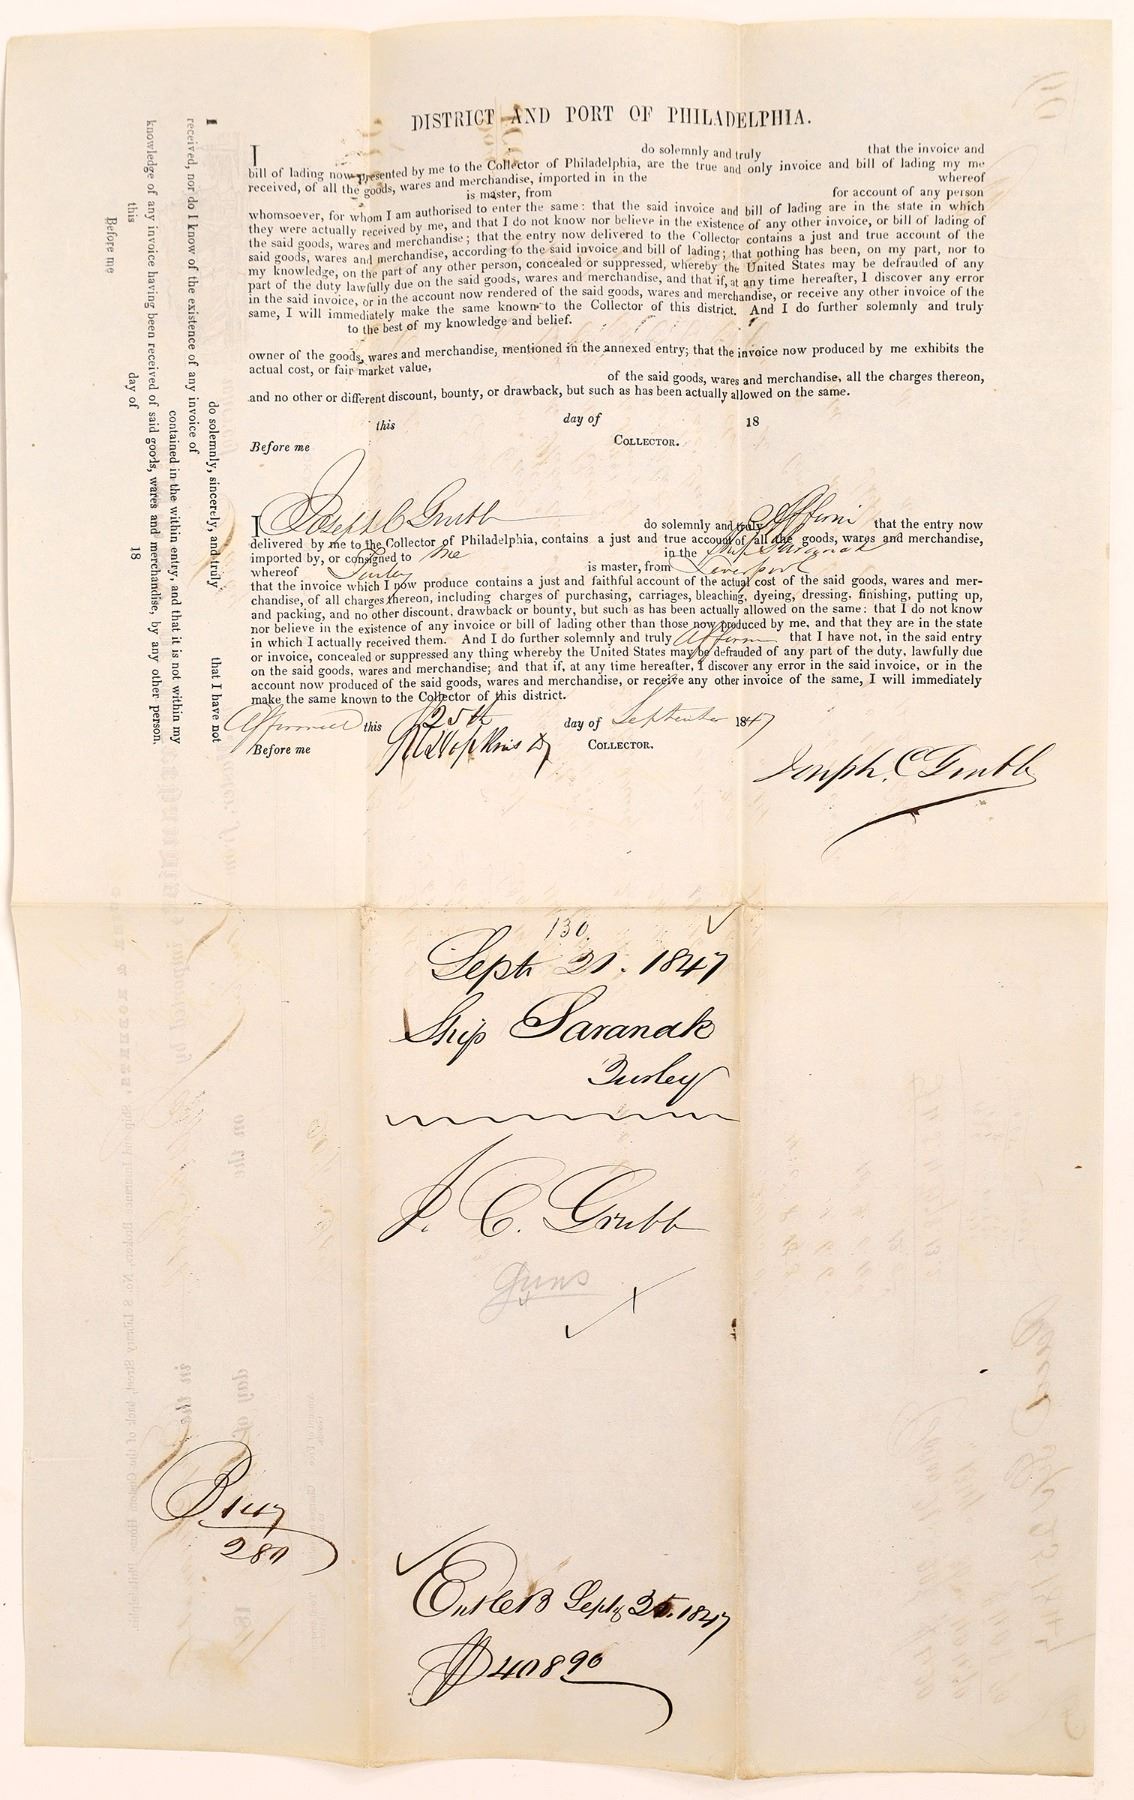 DISTRICT AND PORT OF PHILADELPHIA.
I do solemnly and truly that the invoice and
bill of lading now presented by me to the Collector of Philadelphia, are the true and only invoice and bill of lading my me
received, of all the goods, wares and merchandise, imported in in the whereof
is master, from for account of any person
whomsoever, for whom I am authorised to enter the same: that the said invoice and bill of lading are in the state in which
they were actually received by me, and that I do not know nor believe in the existence of any other invoice, or bill of lading of
the said goods, wares and merchandise; that the entry now delivered to the Collector contains a just and true account of the
said goods, wares and merchandise, according to the said invoice and bill of lading; that nothing has been, on my part, nor to
my knowledge, on the part of any other person, concealed or suppressed, whereby the United States may be defrauded of any
part of the duty lawfully due on the said goods, wares and merchandise, and that if, at any time hereafter, I discover any error
in the said invoice, or in the account now rendered of the said goods, wares and merchandise, or receive any other invoice of the
same, I will immediately make the same known to the Collector of this district. And I do further solemnly and truly
to the best of my knowledge and belief.
owner of the goods, wares and merchandise, mentioned in the annexed entry; that the invoice now produced by me exhibits the
actual cost, or fair market value,
of the said goods, wares and merchandise, all the charges thereon,
and no other or different discount, bounty, or drawback, but such as has been actually allowed on the same.
this day of 18
Before me COLLECTOR.
I Joseph C Grubb do solemnly and truly Affirm that the entry now
delivered by me to the Collector of Philadelphia, contains a just and true account of all the goods, wares and merchandise,
imported by, or consigned to me in the Ship Saranak
whereof Turley is master, from Liverpool
that the invoice which I now produce contains a just and faithful account of the actual cost of the said goods, wares and mer-
chandise, of all charges thereon, including charges of purchasing, carriages, bleaching, dyeing, dressing, finishing, putting up,
and packing, and no other discount, drawback or bounty, but such as has been actually allowed on the same: that I do not know
nor believe in the existence of any invoice or bill of lading other than those now produced by me, and that they are in the state
in which I actually received them. And I do further solemnly and truly Affirm that I have not, in the said entry
or invoice, concealed or suppressed any thing whereby the United States may be defrauded of any part of the duty, lawfully due
on the said goods, wares and merchandise; and that if, at any time hereafter, I discover any error in the said invoice, or in the
account now produced of the said goods, wares and merchandise, or receive any other invoice of the same, I will immediately
make the same known to the Collector of this district.
Affirmed this 25th day of September 1847
Before me Hopkins Dy COLLECTOR.
Joseph. C Grubb
I do solemnly, sincerely, and truly that I have not
received, nor do I know of the existence of any invoice of
contained in the within entry, and that it is not within my
knowledge of any invoice having been received of said goods, wares and merchandise, by any other person.
this day of 18
Before me
130.
Sept 21. 1847
Ship Saranak
Turley
J. C. Grubb
Guns
B 147
280
Entered Sept 25. 1847
$408 90